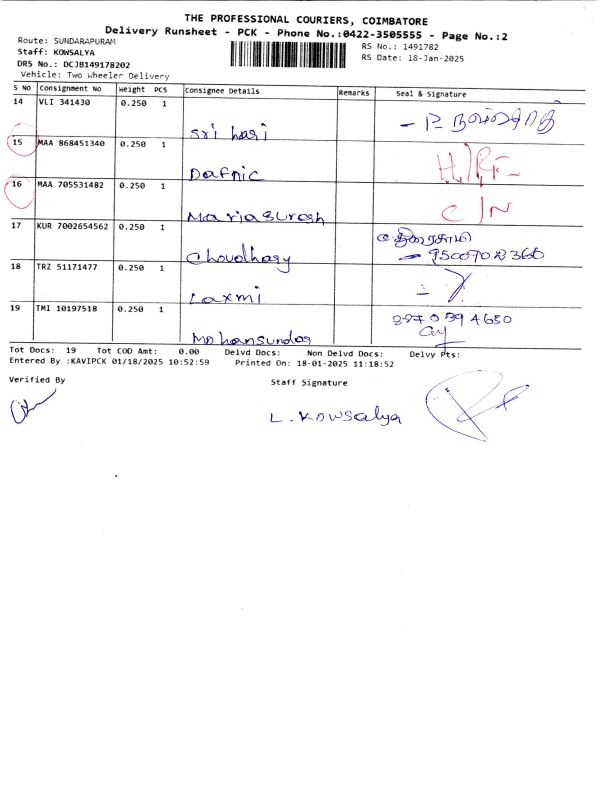 THE PROFESSIONAL COURIERS, COIMBATORE
Delivery Runsheet - PCK - Phone No.:0422-3505555 - Page No.:2
Route: SUNDARAPURAM
RS No.: 1491782
Staff: KOWSALYA
RS Date: 18-Jan-2025
DRS No.: DCJB149178202
Vehicle: Two Wheeler Delivery
S No Consignment No Weight PCS Consignee Details Remarks Seal & Signature
14 VLI 341430 0.250 1 Sri hari
15 MAA 868451340 0.250 1 Dafnic
16 MAA 705531482 0.250 1 Mariasuresh C/N
17 KUR 7002654562 0.250 1 Choudhary
18 TRZ 51171477 0.250 1 Laxmi
19 TMI 10197518 0.250 1 Mohansundar
Tot Docs: 19 Tot COD Amt: 0.00 Delvd Docs: Non Delvd Docs: Delvy Pts:
Entered By :KAVIPCK 01/18/2025 10:52:59 Printed On: 18-01-2025 11:18:52
Verified By
Staff Signature
L. Kowsalya